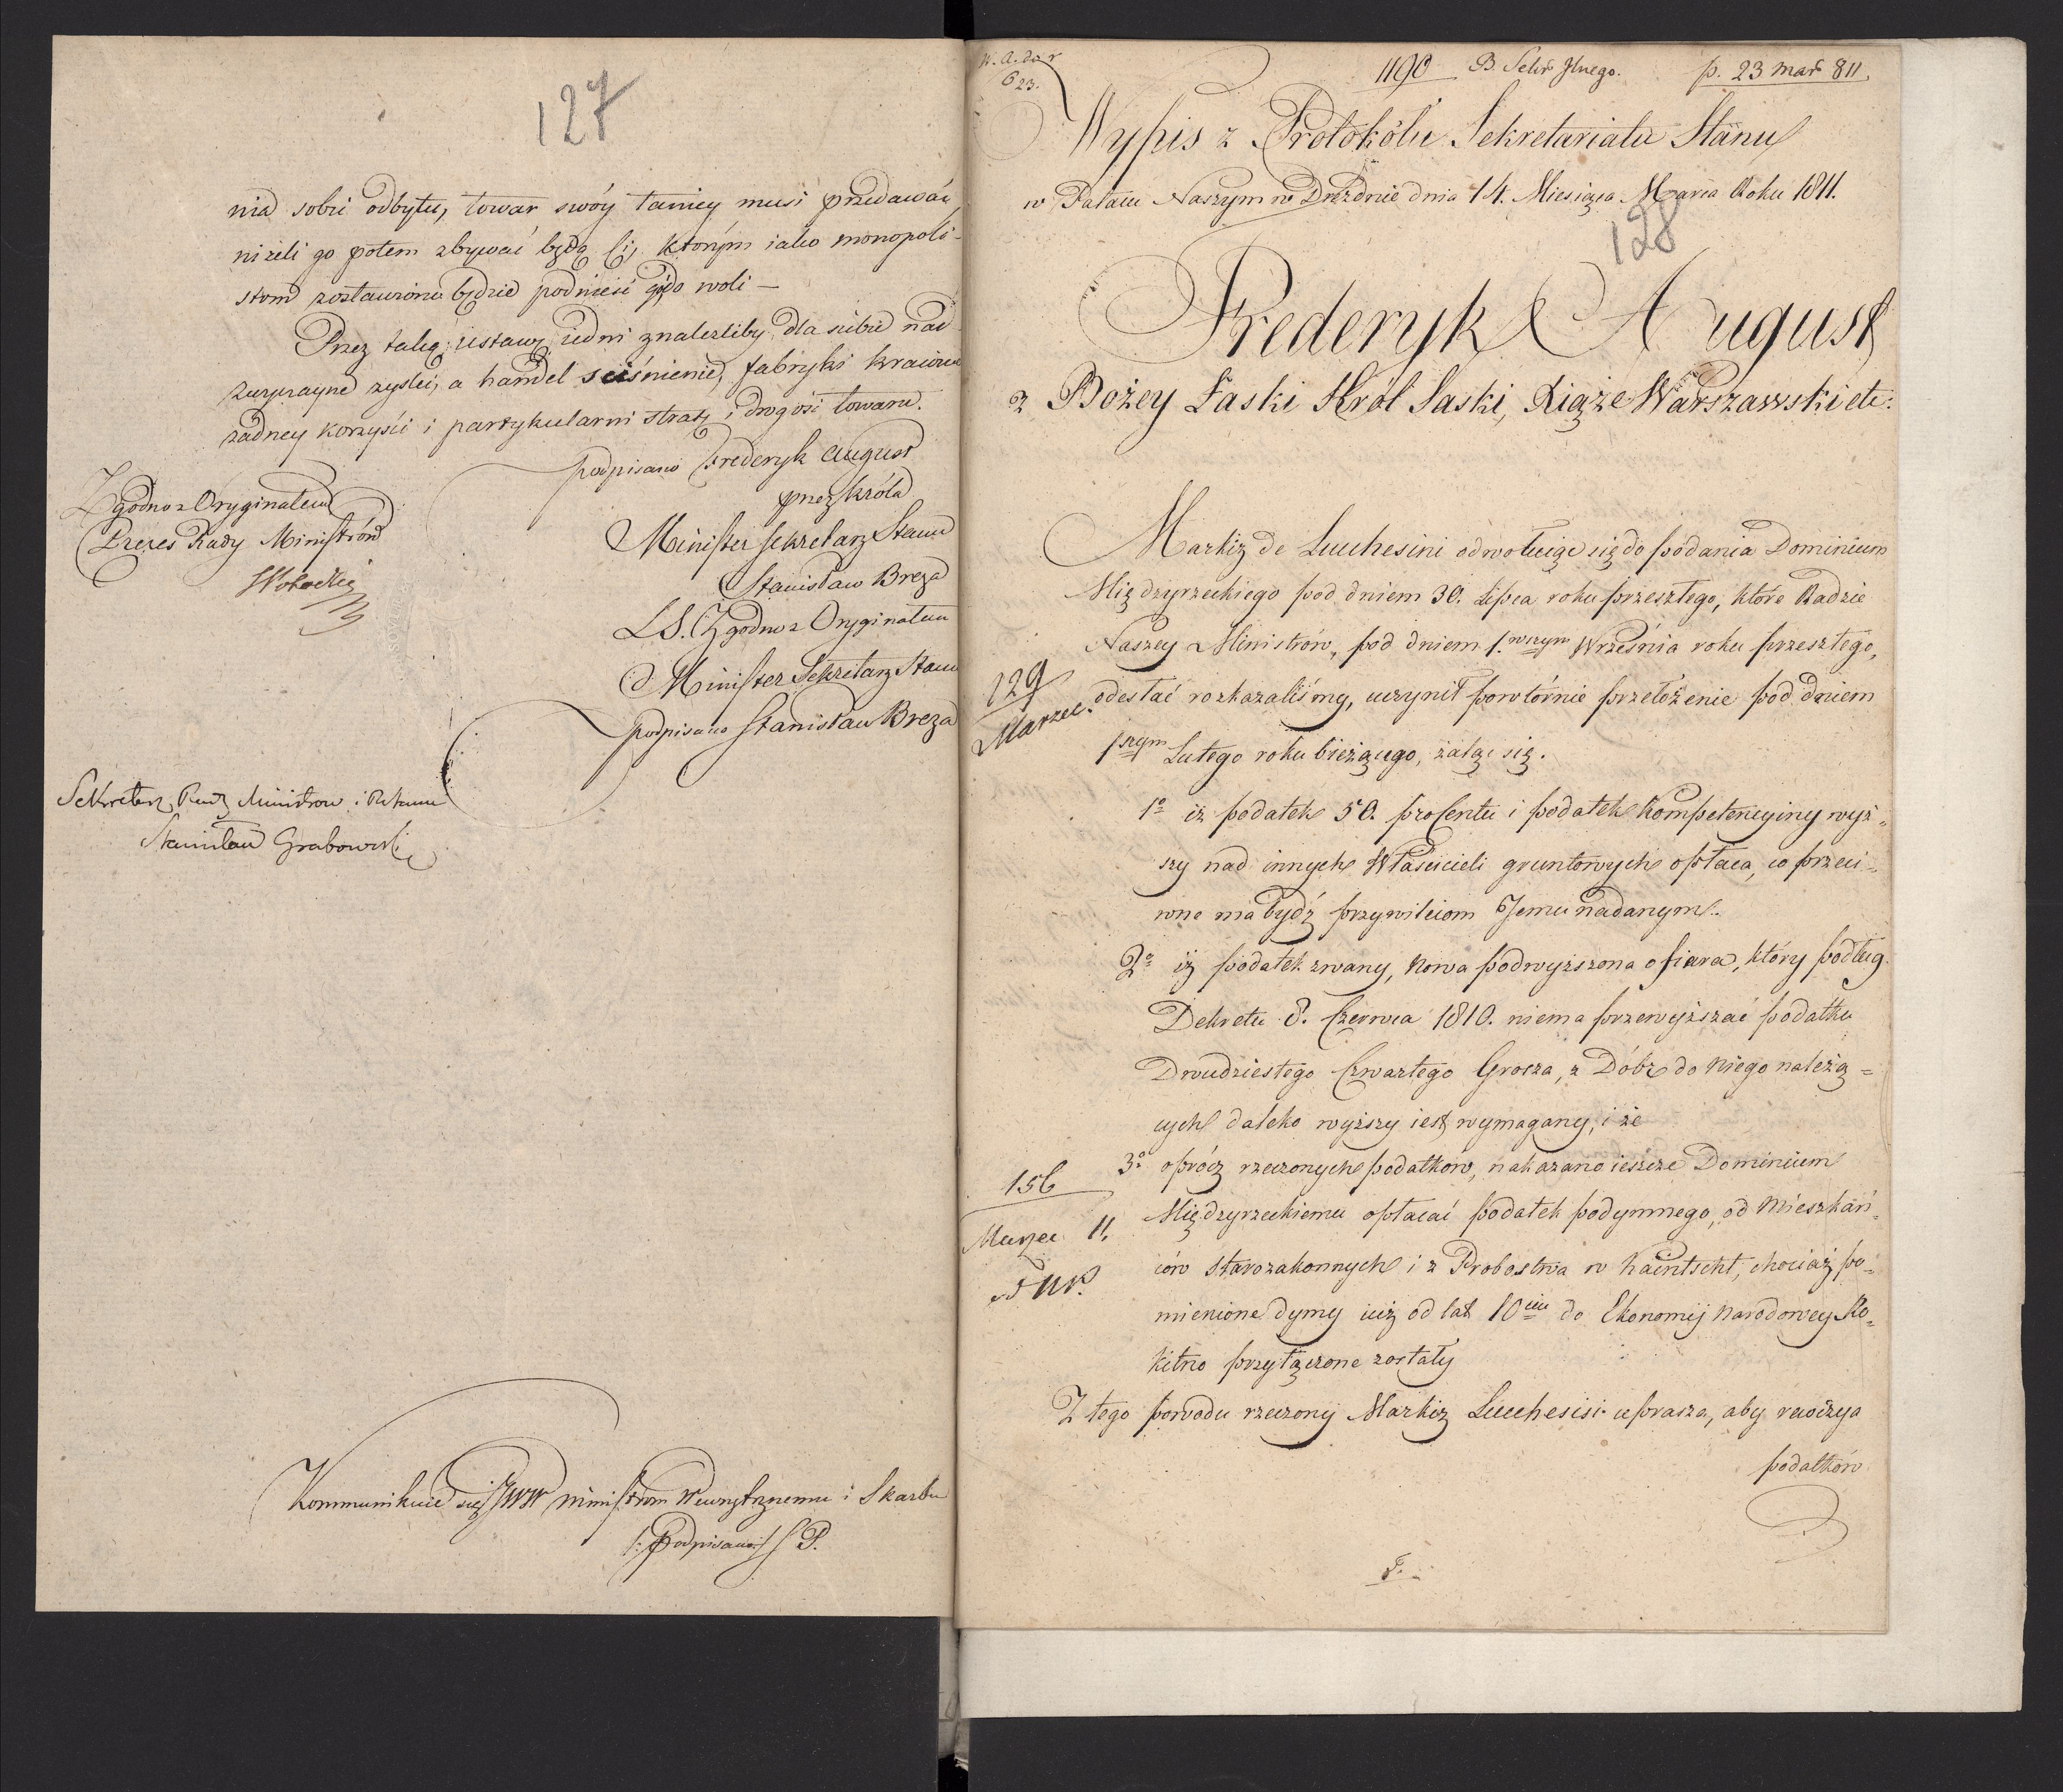 127
nia sobie odbytu, towar swóy taniey musi przedawać,
niżeli go potem zbywać będą Ci, którym iako monopoli-
stom zostawiono będzie podnieść go do woli —
Przez taką ustawę iedni znaleźliby dla siebie nad
zwyczayne zyski, a handel sciśnienie, fabryki kraiowe
żadney korzyści i partykularni stratę i drogość towaru.
podpisano Frederyk August
przez Króla
Minister Sekretarz Stanu
Stanisław Breza
LS. Zgodno z Oryginałem
Minister Sekretarz Stanu
podpisano Stanisław Breza
Zgodno z Oryginałem
Prezes Rady Ministrów
Sekretarz Rady Ministrow i
Stanisław Grabowski
Kommunikuie się JWW Ministrom Wewnętrznemu i Skarbu
/:podpisano:/ S P.
W. A. do r
623.
1190 B. Sekr Jlnego. p. 23 Mar 811.
Wypis z Protokółu Sekretariatu Stanu
w Pałacu Naszym w Dreźdnie dnia 14. Miesiąca Marca Roku 1811.
128
Frederyk August
z Bożey Łaski Król Saski, Xiąże Warszawski etc:
Markiz de Lucchesini odwołuiąc się do podania Dominium
Międzyrzeckiego pod dniem 30. Lipca roku przeszłego, które Radzie
Naszey Ministrów, pod dniem 1.wszym Września roku przeszłego,
129
Marzec.
odesłać rozkazaliśmy, uczynił powtórnie przełożenie pod dniem
1szym Lutego roku bieżącego, żaląc się.
1o iż podatek 50. procentu i podatek Kompetencyiny wyż=
szy nad innych Właścicieli gruntowych opłaca, co przeci=
wne ma bydź przywileiom Jemu nadanym.
2o iż podatek zwany, Nowa podwyższona ofiara, który podług
Dekretu 8. Czerwca 1810. niema przewyższać podatku
Dwudziestego Czwartego Grosza, z Dóbr do Niego należą=
cych daleko wyższy iest wymagany, i że
3o oprócz rzeczonych podatków, nakazano ieszcze Dominium
156
Marzec 11.
Międzyrzeckiemu opłacać podatek podymnego, od Mieszkań=
ców Starozakonnych i z Probostwa w Kaintscht, chociaż po=
mienione dymy iuż od lat 10ciu do Ekonomij Narodowey Ro=
kitno przyłączone zostały
Z tego powodu rzeczony Markiz Lucchesisi uprasza, aby rewizya
podatków